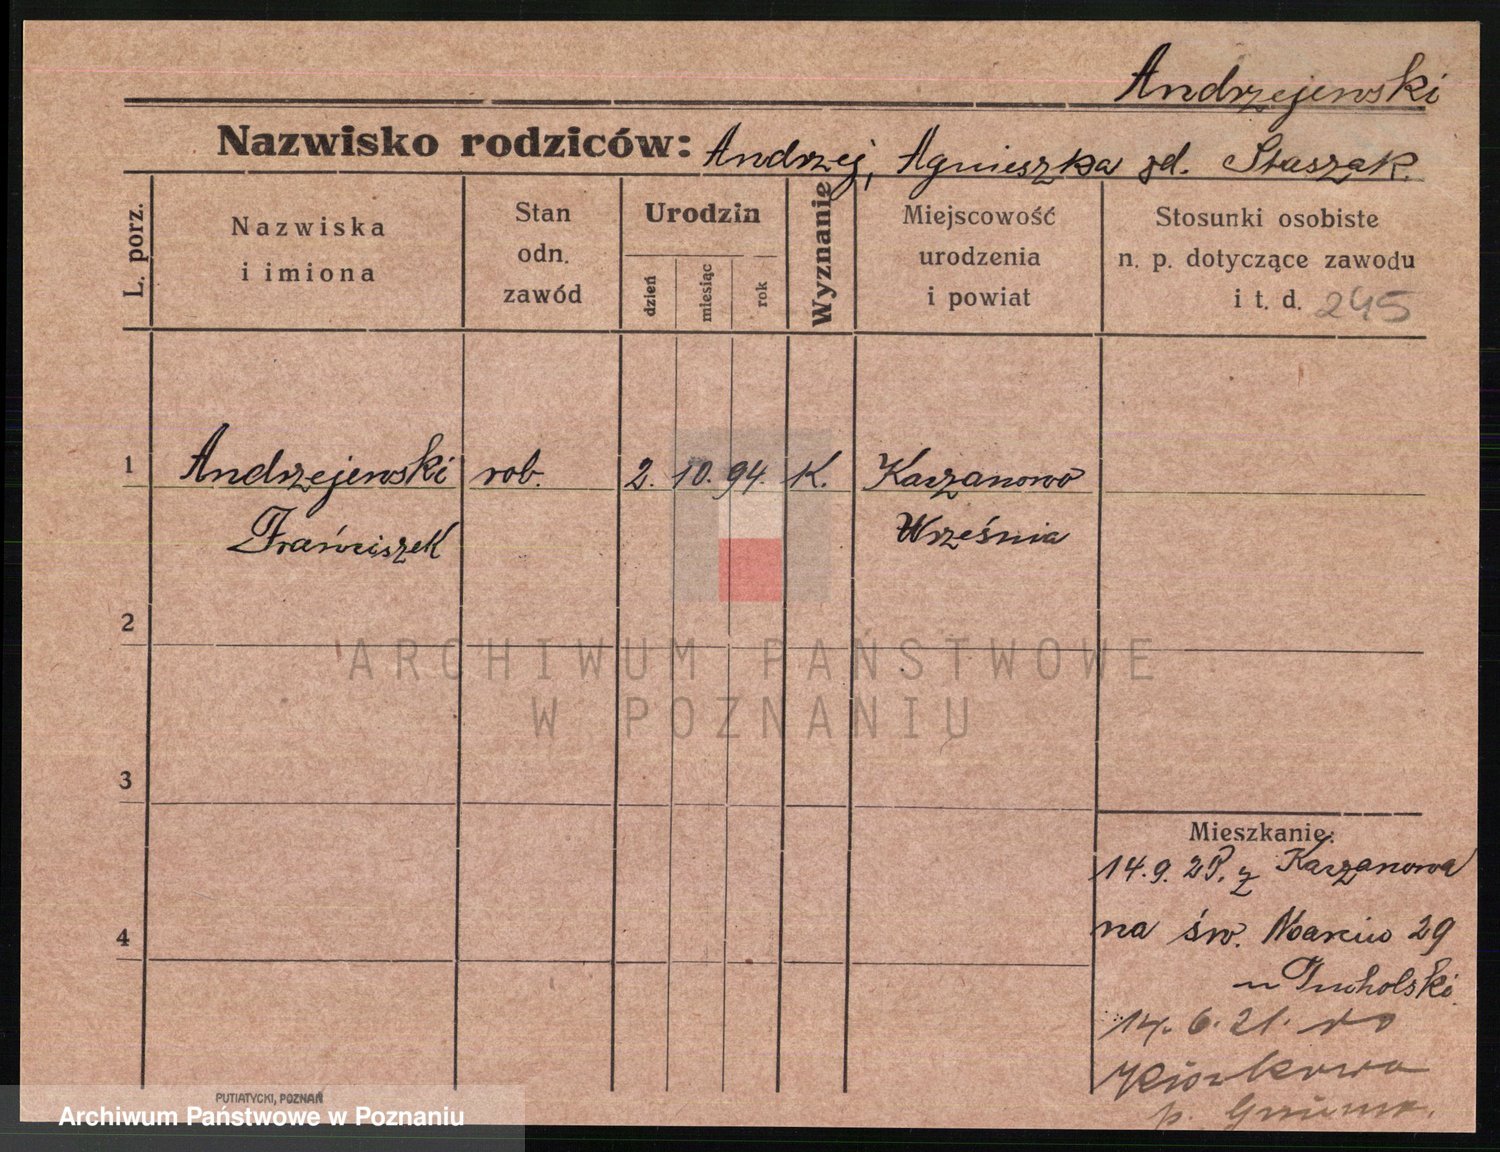 Andrzejewski
Nazwisko rodziców: Andrzej, Agnieszka zd. Staszak.
L. porz.
Nazwiska
i imiona
Stan
odn.
zawód
Urodzin
dzień
miesiąc
rok
Wyznanie
Miejscowość
urodzenia
i powiat
Stosunki osobiste
n. p. dotyczące zawodu
i t. d. 245
1 Andrzejewski rob. 2. 10. 94. K. Kaczanowo
Franciszek Września
2
ARCHIWUM PAŃSTWOWE
W POZNANIU
3
Mieszkanie:
14.9. z Kaczanowa
4 na św. Marcin 29
u Tucholski
14. 6. 21. do
Kiszkowa
p.
PUTIATYCKI, POZNAŃ
Archiwum Państwowe w Poznaniu